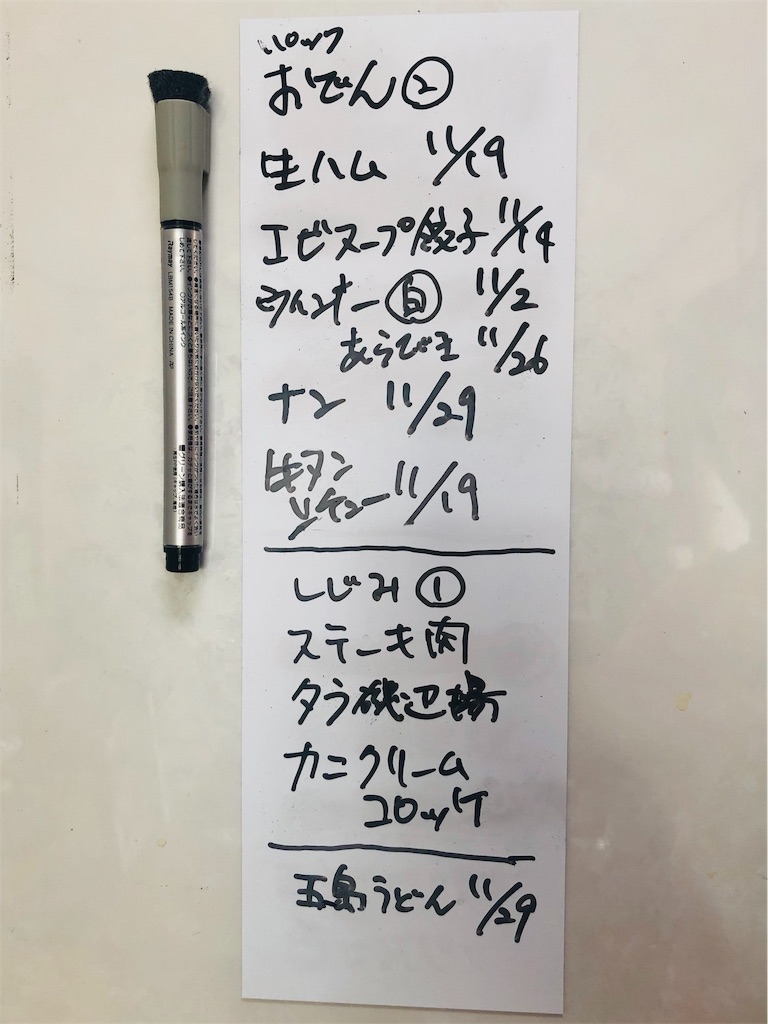 パック
おでん②
生ハム 11/19
エビスープ餃子 11/14
ウインナー㊉ 11/2
あらびき 11/26
ナン 11/29
牛タン
シチュー 11/19
しじみ①
ステーキ肉
タラ磯辺揚
カニクリーム
コロッケ
五島うどん 11/29
Raymay LBM154B MADE IN CHINA JP